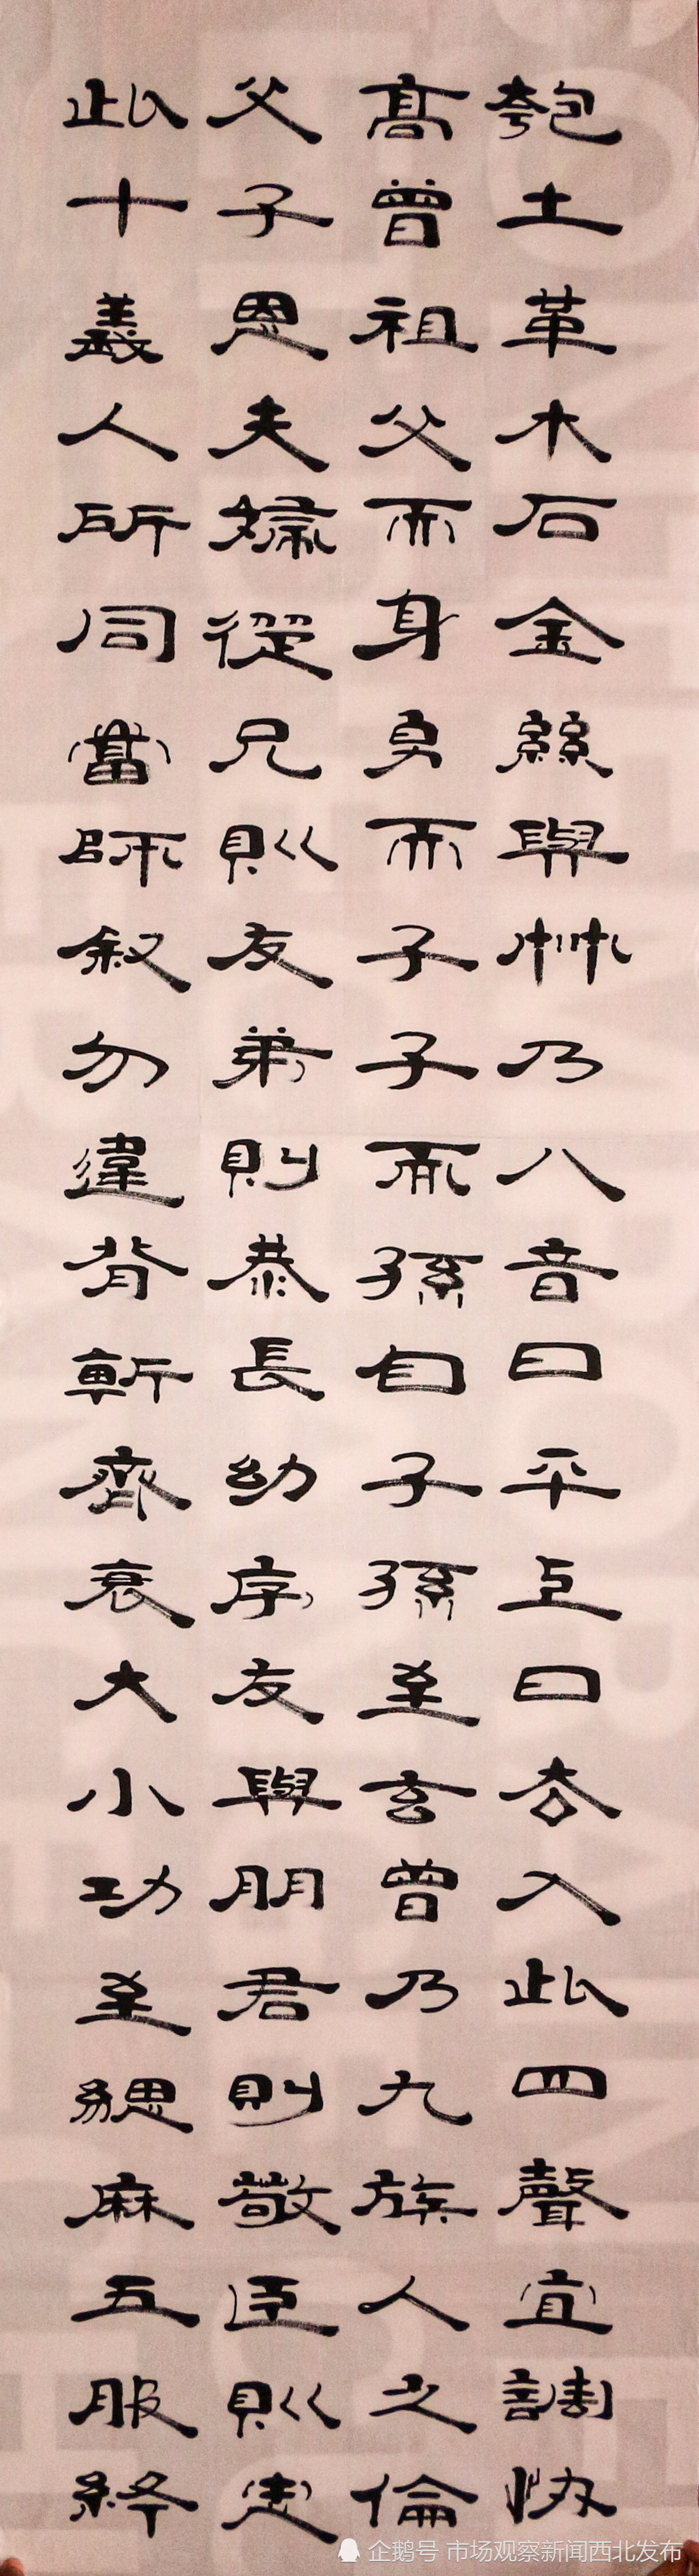 匏土革木石金絲與竹乃八音曰平上曰去入此四聲宜調協
高曾祖父而身身而子子而孫自子孫至玄曾乃九族人之倫
父子恩夫婦從兄則友弟則恭長幼序友與朋君則敬臣則忠
此十義人所同當師叙勿違背斬齊衰大小功至緦麻五服終
企鹅号 市场观察新闻西北发布